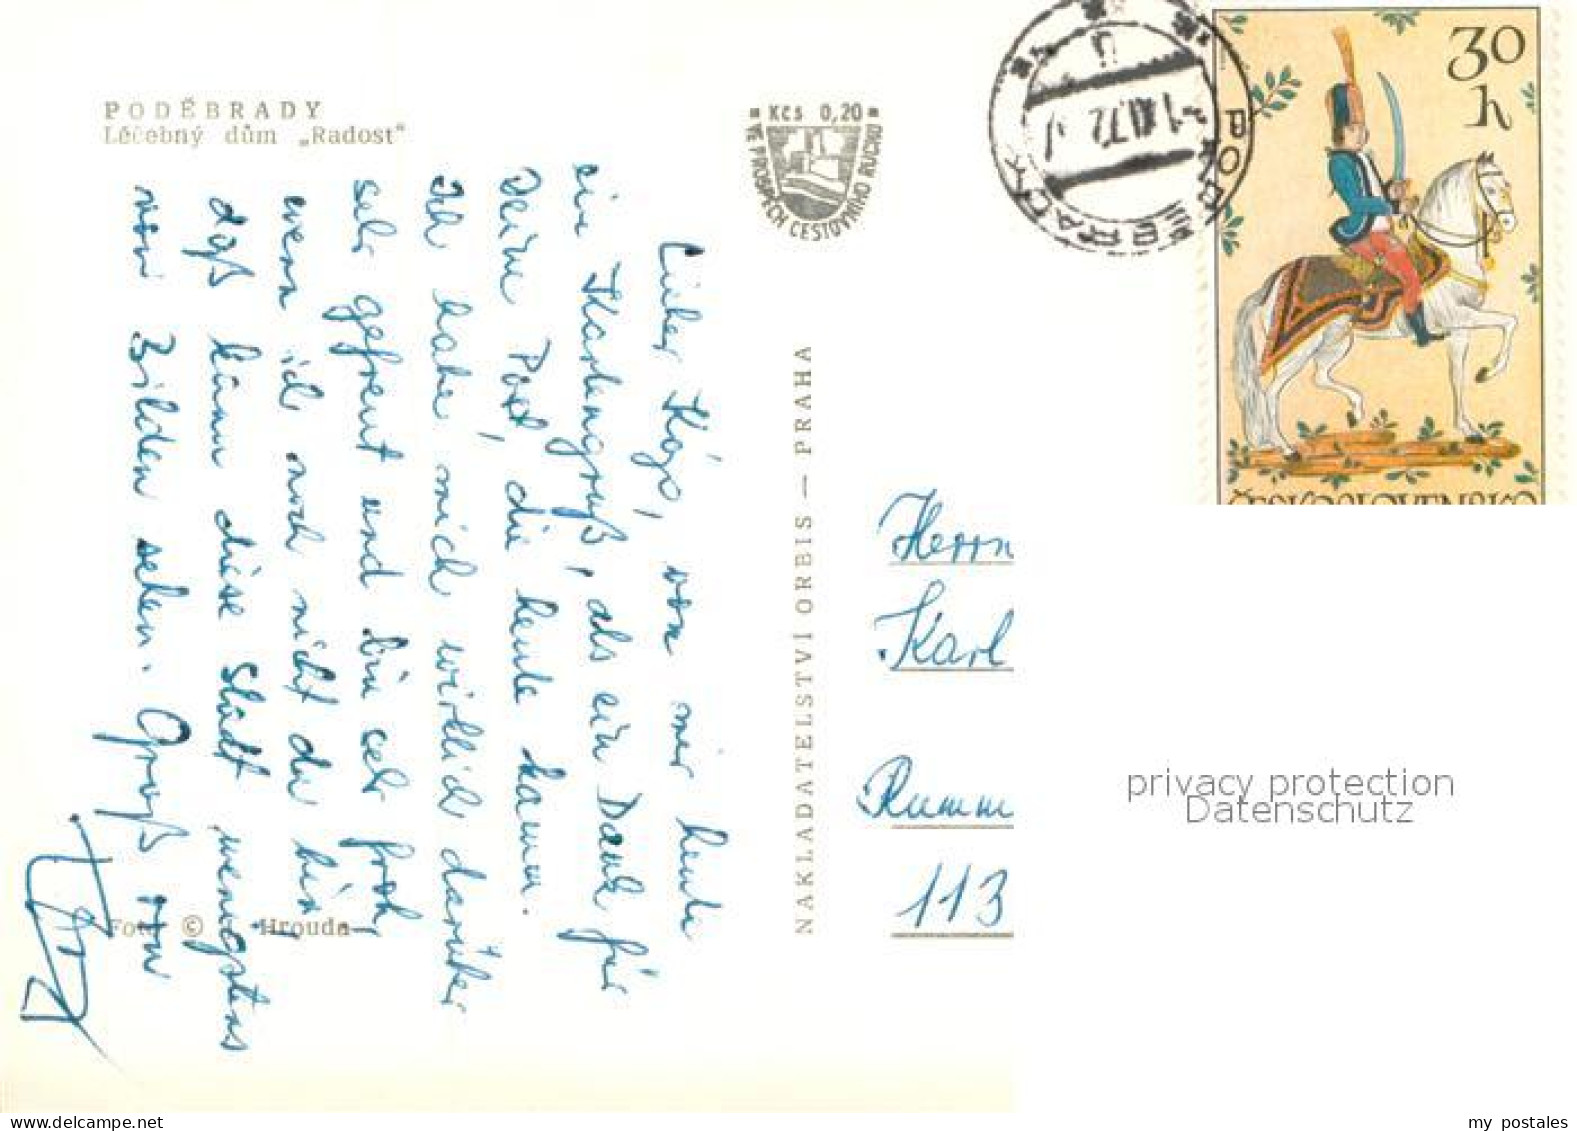 PODĚBRADY
Léčebný dům „Radost"
Kčs 0,20
VE PROSPĚCH CESTOVNÍHO RUCHU
30
h
ČESKOSLOVENSKO
PODĚBRADY
-1.XI.72
Lieber Kázó, von mir heute
ein Kartengruß, als ein Dank für
Deine Post, die heute kamm.
Ich habe mich wirklich darüber
sehr gefreut und bin sehr froh,
wenn ich noch nicht da bin
daß kann diese Stadt wenigstens
von Bilden sehen. Gruß
NAKLADATELSTVÍ ORBIS — PRAHA
Foto © Hrouda
Herrn
Karl
Rumm
113
privacy protection
Datenschutz
delcampe.net
my_postales